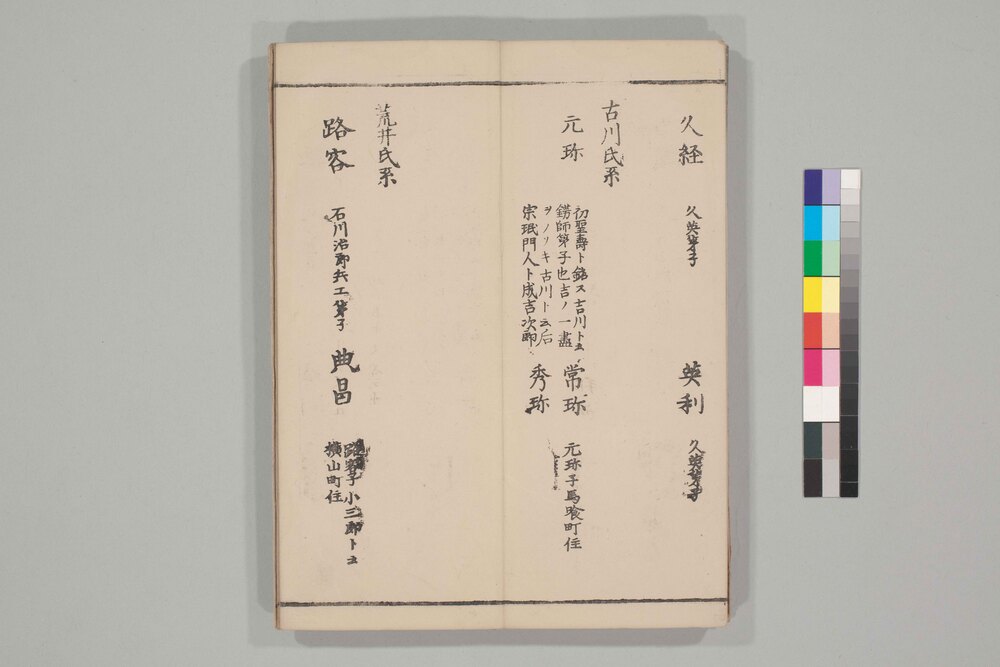 久経
久英弟子
英利
久英弟子
古川氏系
元珎
初聖壽ト銘ス吉川ト云
錺師弟子也吉ノ一盡
ヲノソキ古川ト云后
宗珉門人ト成吉次郎
常珎
元珎子馬喰町住
秀珎
荒井氏系
路容
石川治郎兵エ弟子
典昌
路容子小三郎ト云
横山町住